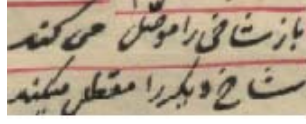 باز شاخی را موصل می کند
شاخ دیگر را معطل میکند